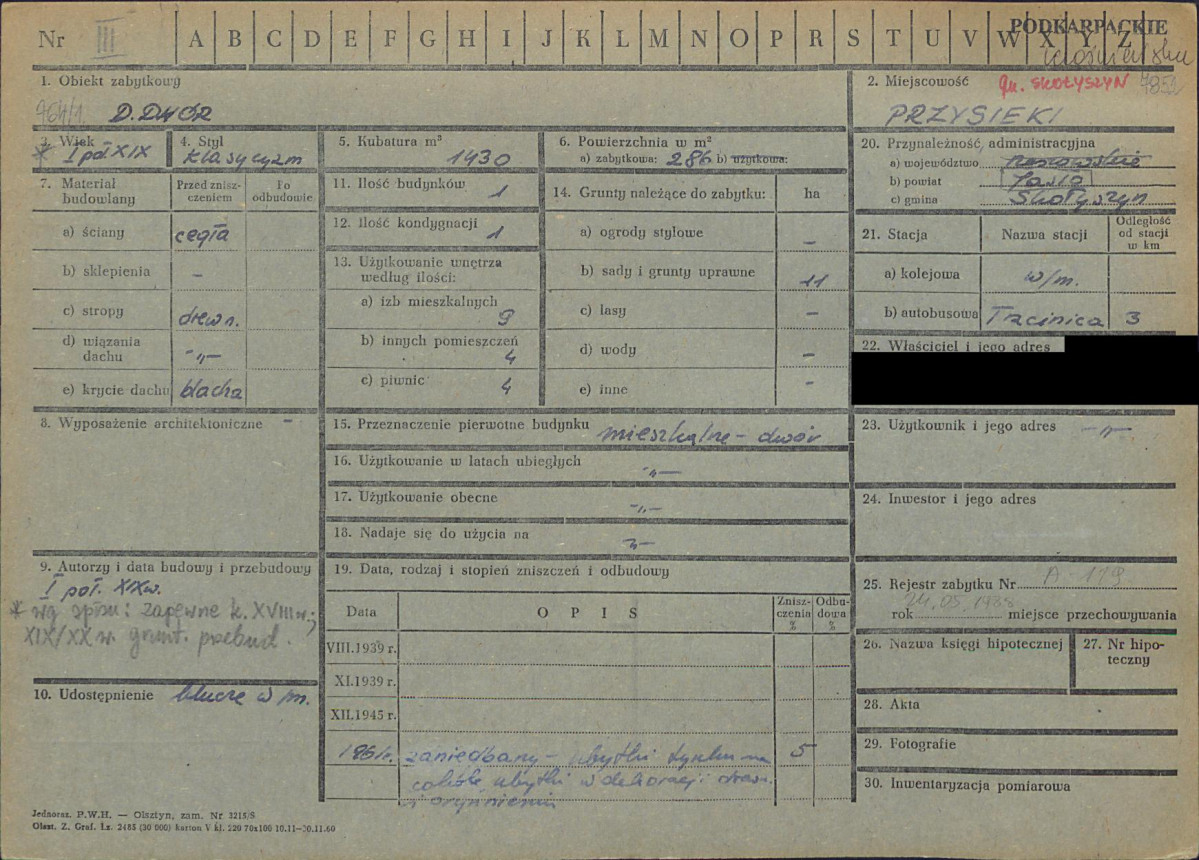 Nr III A B C D E F G H I J K L M N O P R S T U V W X Y Z
PODKARPACKIE
1. Obiekt zabytkowy
D. DWÓR
2. Miejscowość gm. SKOŁYSZYN
PRZYSIEKI
3. Wiek
* I poł. XIX
4. Styl
klasycyzm
5. Kubatura m³
1430
6. Powierzchnia w m²
a) zabytkowa: 286 b) użytkowa:
7. Materiał budowlany
Przed zniszczeniem
Po odbudowie
a) ściany cegła
b) sklepienia –
c) stropy drewn.
d) wiązania dachu -„-
e) krycie dachu blacha
8. Wyposażenie architektoniczne –
9. Autorzy i data budowy i przebudowy
I poł. XIX w.
* wg spisu: zapewne k. XVIII w;
XIX/XX w. grunt. przebud.
10. Udostępnienie klucze w m.
11. Ilość budynków
1
12. Ilość kondygnacji
1
13. Użytkowanie wnętrza
według ilości:
a) izb mieszkalnych
9
b) innych pomieszczeń
4
c) piwnic 4
14. Grunty należące do zabytku: ha
a) ogrody stylowe –
b) sady i grunty uprawne 11
c) lasy –
d) wody –
e) inne –
15. Przeznaczenie pierwotne budynku mieszkalne – dwór
16. Użytkowanie w latach ubiegłych
-„-
17. Użytkowanie obecne
-„-
18. Nadaje się do użycia na
-„-
19. Data, rodzaj i stopień zniszczeń i odbudowy
Data OPIS Zniszczenia % Odbudowa %
VIII.1939 r.
XI.1939 r.
XII.1945 r.
1961r. zaniedbany – ubytki tynku na 5
całości, ubytki w dekoracji drewn.
i orynnieniu
20. Przynależność administracyjna
a) województwo rzeszowskie
b) powiat Jasło
c) gmina Skołyszyn
21. Stacja Nazwa stacji Odległość od stacji w km
a) kolejowa w/m.
b) autobusowa Trzcinica 3
22. Właściciel i jego adres
23. Użytkownik i jego adres -„-
24. Inwestor i jego adres
25. Rejestr zabytku Nr A-119
rok 24.05.1938 miejsce przechowywania
26. Nazwa księgi hipotecznej
27. Nr hipoteczny
28. Akta
29. Fotografie
30. Inwentaryzacja pomiarowa
Jednoraz. P.W.H. — Olsztyn, zam. Nr 3215/S
Olszt. Z. Graf. Łz. 2485 (30 000) karton V kl. 220 70x100 10.11—30.11.60